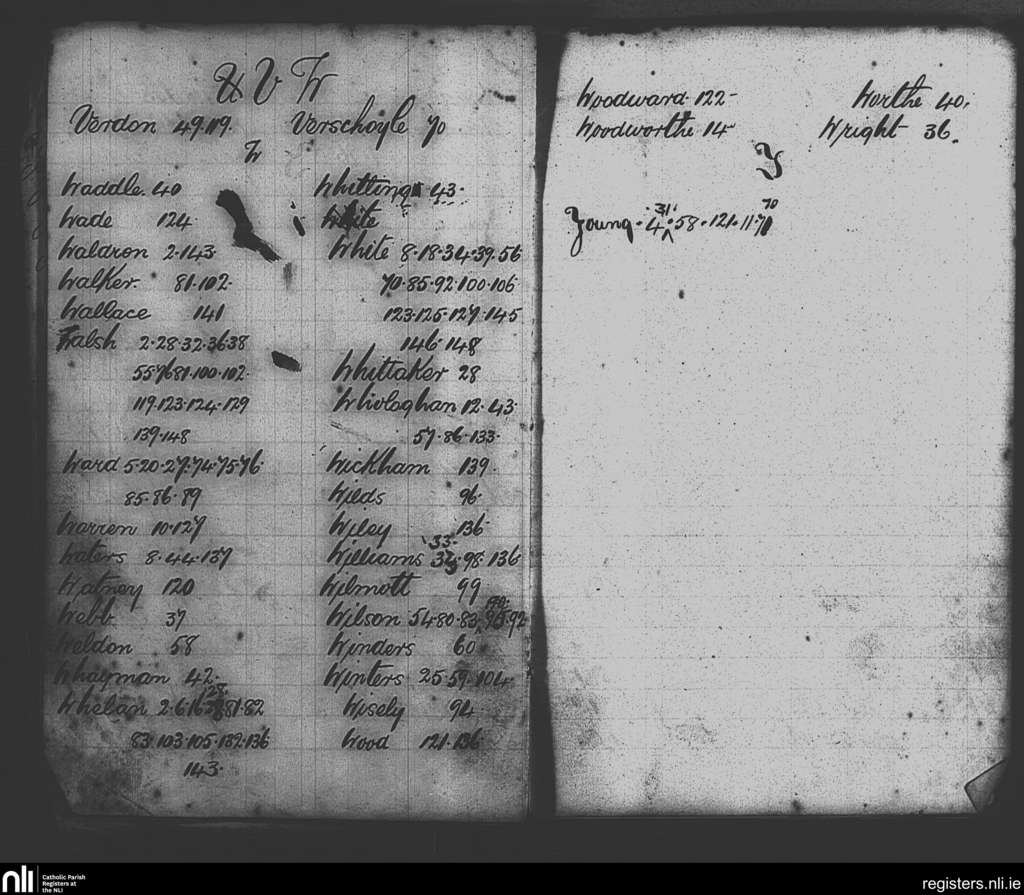 U V W
Verdon 49.119.
Verschoyle 70
W
Waddle. 40
Wade 124
Waldron 2.143.
Walker. 81.102.
Wallace 141
Walsh 2.28.32.36.38
55.76.81.100.102.
119.123.124.129
139.148
Ward 5.20.27.74.75.76.
85.86.89
Warren 10.127
Waters 8.44.137
Watney 120
Webb. 37
Weldon 58
Whayman 42.
Whelan 2.6.16 81.82
83.103.105.132.136
143.
Whitting 43.
White
White 8.18.34.39.56
70.85.92.100.106
123.125.127.145
146.148
Whittaker 28
Whiologhan 12.43.
57.86.133.
Wickham 139.
Wilds 96.
Wiley 136
33.
Williams 34.98.136
Wilmott 99
Wilson 54.80.83. 92
Winders 60
Winters 25.59.104.
Wisely 94
Wood 121.136
Woodward. 122
Woodworthe 14
Worthe 40.
Wright 36.
Y
31. 70
Young. 4.58.121.117
nli Catholic Parish
Registers at
the NLI
registers.nli.ie